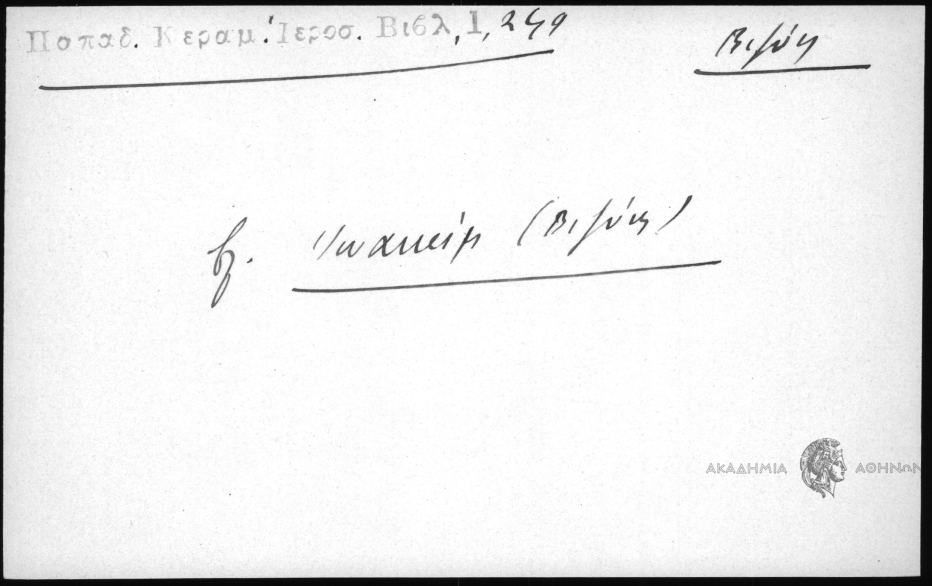 Παπαδ. Κεραμ. Ἱεροσ. Βιβλ, 1, 249
Βιζύη
βλ. Ἰωακείμ (Βιζύης)
ΑΚΑΔΗΜΙΑ ΑΘΗΝΩΝ